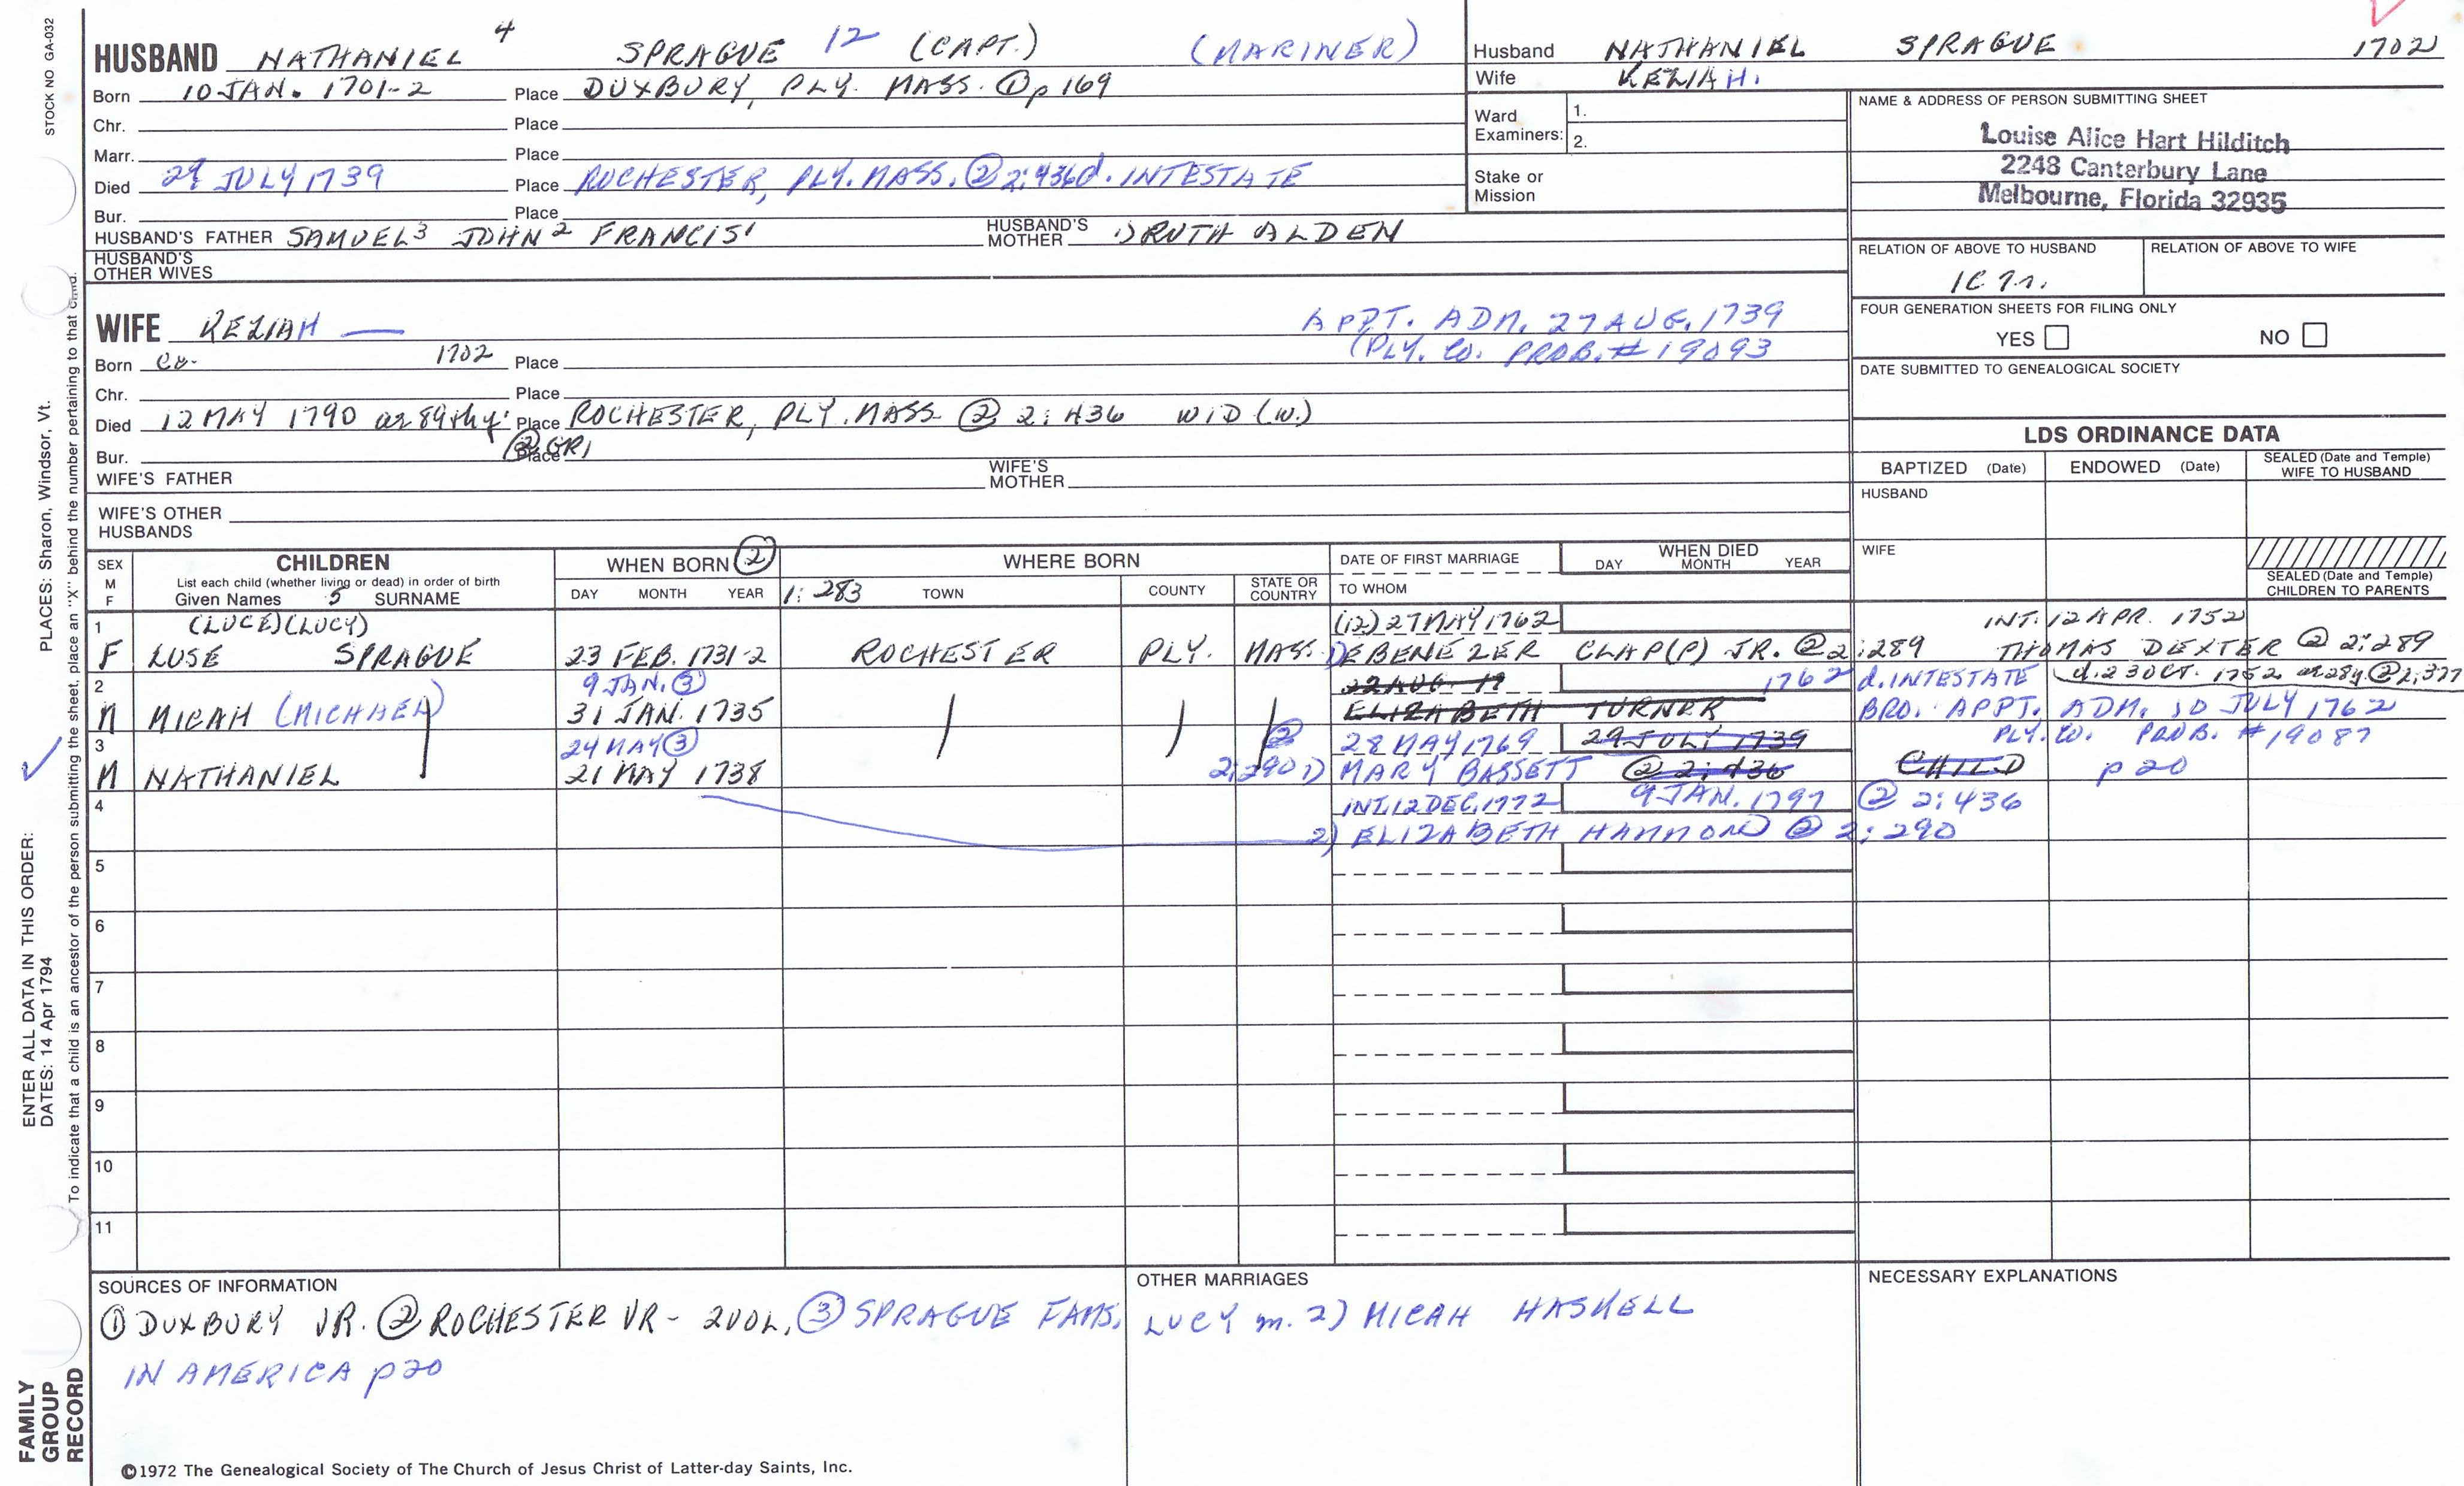 STOCK NO GA-032
HUSBAND NATHANIEL 4 SPRAGUE 12 (CAPT.) (MARINER)
Born 10 JAN. 1701-2 Place DUXBURY, PLY. MASS. ① p 169
Chr. Place
Marr. Place
Died 29 JULY 1739 Place ROCHESTER, PLY. MASS. ② 2:436 d. INTESTATE
Bur. Place
HUSBAND'S FATHER SAMUEL 3 JOHN 2 FRANCIS 1 HUSBAND'S MOTHER 1) RUTH ALDEN
HUSBAND'S OTHER WIVES
Husband NATHANIEL SPRAGUE 1702
Wife KEZIAH.
Ward Examiners: 1.
2.
Stake or Mission
NAME & ADDRESS OF PERSON SUBMITTING SHEET
Louise Alice Hart Hilditch
2248 Canterbury Lane
Melbourne, Florida 32935
RELATION OF ABOVE TO HUSBAND RELATION OF ABOVE TO WIFE
FOUR GENERATION SHEETS FOR FILING ONLY
YES NO
DATE SUBMITTED TO GENEALOGICAL SOCIETY
WIFE KEZIAH —
APPT. ADM. 27 AUG. 1739
(PLY. CO. PROB. # 19093
Born ca. 1702 Place
Chr. Place
Died 12 MAY 1790 ae 89thy. Place ROCHESTER, PLY. MASS ② 2:436 WID (W.)
② GR1
Bur. Place
WIFE'S FATHER WIFE'S MOTHER
WIFE'S OTHER HUSBANDS
LDS ORDINANCE DATA
BAPTIZED (Date) ENDOWED (Date) SEALED (Date and Temple) WIFE TO HUSBAND
HUSBAND
WIFE
SEALED (Date and Temple) CHILDREN TO PARENTS
SEX M F CHILDREN WHEN BORN ② WHERE BORN DATE OF FIRST MARRIAGE WHEN DIED
List each child (whether living or dead) in order of birth
Given Names 5 SURNAME DAY MONTH YEAR 1:283 TOWN COUNTY STATE OR COUNTRY TO WHOM DAY MONTH YEAR
1 (LUCE) (LUCY) (12) 27 MAY 1762 INT. 12 APR. 1752
F LUSE SPRAGUE 23 FEB. 1731-2 ROCHESTER PLY. MASS. 1) EBENEZER CLAP(P) JR. ② 2:289 THOMAS DEXTER ② 2:289
2 9 JAN. ③ 22 AUG. 17 1762 d. INTESTATE d. 23 OCT. 1752 ae 28y. ② 2:377
M MICAH (MICHAEL) 31 JAN. 1735 ELIZABETH TURNER BRO. APPT. ADM. 10 JULY 1762
3 24 MAY ③ ② 28 MAY 1769 29 JULY 1739 PLY. CO. PROB. # 19087
M NATHANIEL 21 MAY 1738 2:290 1) MARY BASSETT ② 2:436 CHILD p 20
4 INT. 12 DEC. 1772 9 JAN. 1797 ② 2:436
2) ELIZABETH HAMMOND ② 2:290
5
6
7
8
9
10
11
SOURCES OF INFORMATION
① DUXBURY VR. ② ROCHESTER VR - 2 VOL. ③ SPRAGUE FAMS.
IN AMERICA p 20
OTHER MARRIAGES
LUCY m. 2) MICAH HASKELL
NECESSARY EXPLANATIONS
©1972 The Genealogical Society of The Church of Jesus Christ of Latter-day Saints, Inc.
FAMILY GROUP RECORD
ENTER ALL DATA IN THIS ORDER:
DATES: 14 Apr 1794
PLACES: Sharon, Windsor, Vt.
To indicate that a child is an ancestor of the person submitting the sheet, place an "X" behind the number pertaining to that child.